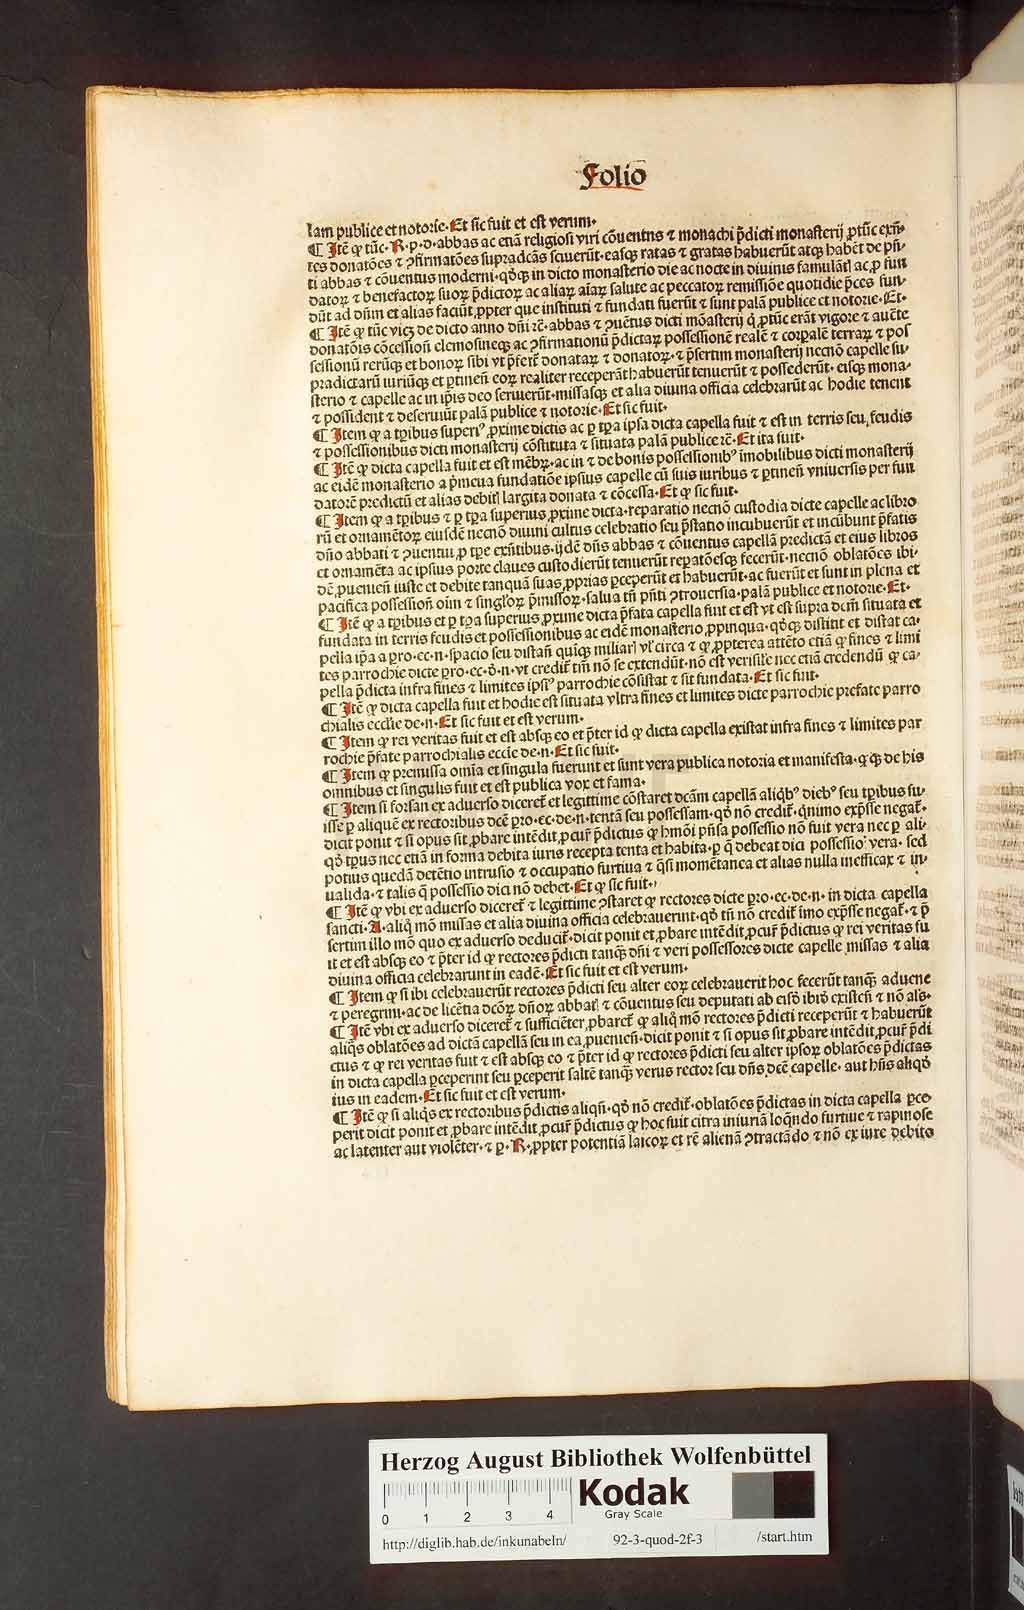 Folio
lam publice et notorie. Et sic fuit et est verum.
¶ Itē qꝫ tūc. R. p. d. abbas ac etiā religiosi viri cōuentus ⁊ monachi p̄dicti monasterij ꝓ tūc exn̄-
tes donatōes ⁊ ꝯfirmatōes supradcās scuerūt. easqꝫ ratas ⁊ gratas habuerūt atqꝫ habēt de pn̄-
ti abbas ⁊ cōuentus moderni. qd̓qꝫ in dicto monasterio die ac nocte in diuinis famulāt᷑ ac ꝓ fun
datoꝝ ⁊ benefactoꝝ suoꝝ p̄dictoꝝ ac aliaꝝ aīaꝝ salute ac peccatoꝝ remissiōe quotidie p̄ces fun-
dūt ad dn̄m et alias faciūt ꝓpter que instituti ⁊ fundati fuerūt ⁊ sunt palā publice et notorie. Et.
¶ Itē qꝫ tūc viqꝫ de dicto anno dn̄i ꝛē. abbas ⁊ ꝯuētus dicti mōasterij q̓ ꝓ tūc erāt vigore ⁊ auc̄te
donatōis cōcessiōn elemosineqꝫ ac ꝯfirmationū p̄dictaꝝ possessionē realē ⁊ corꝑalē terraꝝ ⁊ pos
sessionū rerūqꝫ et bonoꝝ sibi vt p̄fert᷑ donataꝝ ⁊ donatoꝝ. ⁊ p̄sertim monasterij necnō capelle su-
pradictarū iuriūqꝫ et ꝑtinen̄ eoꝝ realiter receperāt habuerūt tenuerūt ⁊ possederūt. eisqꝫ mona-
sterio ⁊ capelle ac in ip̄is deo seruierūt. missasqꝫ et alia diuina officia celebrarūt ac hodie tenent
⁊ possident ⁊ deseruiūt palā publice ⁊ notorie. Et sic fuit.
¶ Item qꝫ a tꝑibus superiꝰ ꝓxime dictis ac ꝑ tꝑa ipsa dicta capella fuit ⁊ est in terris seu feudis
⁊ possessionibus dicti monasterij cōstituta ⁊ situata palā publice ꝛē. Et ita fuit.
¶ Itē qꝫ dicta capella fuit et est mēbꝝ. ac in ⁊ de bonis possessionibꝰ imobilibus dicti monasterij
ac eidē monasterio a p̄meua fundatiōe ipsius capelle cū suis iuribus ⁊ ꝑtinen̄ vniuersis per fun
datorē predictū et alias debit᷑ largita donata ⁊ cōcessa. Et qꝫ sic fuit.
¶ Item qꝫ a tꝑibus ⁊ ꝑ tꝑa superius ꝓxime dicta. reparatio necnō custodia dicte capelle ac libro
rū et ornamētoꝝ eiusdē necnō diuini cultus celebratio seu p̄statio incubuerūt et incūbunt p̄fatis
dn̄o abbati ⁊ ꝯuentui ꝓ tꝑe exn̄tibus. ijdē dn̄s abbas ⁊ cōuentus capellā predictā et eius libros
et ornamēta ac ipsius porte claues custodierūt tenuerūt reꝑatōesqꝫ fecerūt. necnō oblatōes ibi-
dē ꝓuenien̄ iuste et debite tanquā suas ꝓprias ꝑceperūt et habuerūt. ac fuerūt et sunt in plena et
pacifica possession̄ oīm ⁊ singl̓oꝝ p̄missoꝝ. salua tn̄ pn̄ti ꝯtrouersia. palā publice et notorie. Et.
¶ Itē qꝫ a tꝑibus et ꝑ tꝑa superius ꝓxime dicta p̄fata capella fuit et est vt est supra dcm̄ situata et
fundata in terris feudis et possessionibus ac eidē monasterio ꝓpinqua. qd̓qꝫ distint et distat ca-
pella ip̄a a ꝑro. ec. n. spacio seu distan̄ quiqꝫ miliar᷑ vl̓ circa ⁊ qꝫ ꝓpterea attēto etiā qꝫ fines ⁊ limi
tes parrochie dicte ꝑro. ec. d̓. n. vt credit᷑ tm̄ nō se extendūt. nō est verisil̓e nec etiā credendū qꝫ ca-
pella p̄dicta infra fines ⁊ limites ipsiꝰ parrochie cōsistat ⁊ sit fundata. Et sic fuit.
¶ Itē qꝫ dicta capella fuit et hodie est situata vltra fines et limites dicte parrochie prefate parro
chialis ecclīe de. n. Et sic fuit et est verum.
¶ Item qꝫ rei veritas fuit et est absqꝫ eo et p̄ter id qꝫ dicta capella existat infra fines ⁊ limites par
rochie p̄fate parrochialis eccīe de. n. Et sic fuit.
¶ Item qꝫ premissa omīa et singula fuerunt et sunt vera publica notoria et manifesta. qꝫ qꝫ de his
omnibus et singulis fuit et est publica vox et fama.
¶ Item si forsan ex aduerso diceret᷑ et legittime cōstaret dcām capellā aliqb̓ꝰ diebꝰ seu tꝑibus fu-
isse ꝑ aliquē ex rectoribus dcē ꝑro. ec. de. n. tentā seu possessam. qd̓ nō credit᷑. q̓nimo exp̄sse negat᷑.
dicit ponit ⁊ si opus sit ꝓbare intēdit ꝓcur᷑ p̄dictus qꝫ hm̄oi pn̄sa possessio nō fuit vera nec ꝑ ali-
qd̓ tꝑus nec etiā in forma debita iuris recepta tenta et habita. ꝑ q̓ debeat dici possessio vera. sed
potius quedā detētio intrusio ⁊ occupatio furtiua ⁊ q̄si momētanea et alias nulla inefficax ⁊ in-
ualida. ⁊ talis q̓ possessio dici nō debet. Et qꝫ sic fuit.
¶ Itē qꝫ vbi ex aduerso diceret᷑ ⁊ legittime ꝯstaret qꝫ rectores dicte ꝑro. ec. de. n. in dicta capella
sancti. A. aliq̓ mō missas et alia diuina officia celebrauerint. qd̓ tn̄ nō credit᷑ imo exp̄sse negat᷑. ⁊ p̄
sertim illo mō quo ex aduerso deducit᷑. dicit ponit et ꝓbare intēdit ꝓcur᷑ p̄dictus qꝫ rei veritas fu
it et est absqꝫ eo ⁊ p̄ter id qꝫ rectores p̄dicti tanqꝫ dn̄i ⁊ veri possessores dicte capelle missas ⁊ alia
diuina officia celebrarunt in eadē. Et sic fuit et est verum.
¶ Item qꝫ si ibi celebrauerūt rectores p̄dicti seu alter eoꝝ celebrauerit hoc fecerūt tanqꝫ aduene
⁊ peregrini. ac de licētia dcōꝝ dn̄oꝝ abbat᷑ ⁊ cōuentus seu deputati ab eisd̓ ibid̓ existen̄ ⁊ nō al̓s.
¶ Itē vbi ex aduerso diceret᷑ ⁊ sufficiēter ꝓbaret᷑ qꝫ aliq̓ mō rectores p̄dicti receperūt ⁊ habuerūt
aliq̓s oblatōes ad dictā capellā seu in ea ꝓuenien̄. dicit ponit ⁊ si opus sit ꝓbare intēdit ꝓcur᷑ p̄di
ctus ⁊ qꝫ rei veritas fuit ⁊ est absqꝫ eo ⁊ p̄ter id qꝫ rectores p̄dicti seu alter ipsoꝝ oblatōes p̄dictas
in dicta capella ꝑceperint seu ꝑceperit saltē tanqꝫ verus rector seu dn̄s dcē capelle. aut hn̄s aliqd̓
ius in eadem. Et sic fuit et est verum.
¶ Itē qꝫ si aliq̓s ex rectoribus p̄dictis aliqn̄. qd̓ nō credit᷑. oblatōes p̄dictas in dicta capella ꝑce-
perit dicit ponit et ꝓbare intēdit ꝓcur᷑ p̄dictus qꝫ hoc fuit citra iniuriā loqn̄do furtiue ⁊ rapinose
ac latenter aut violēter. ⁊ ꝑ. R. ꝓpter potentiā laicoꝝ et rē alienā ꝯtractādo ⁊ nō ex iure debito
Herzog August Bibliothek Wolfenbüttel
0 1 2 3 4
Kodak
Gray Scale
http://diglib.hab.de/inkunabeln/ 92-3-quod-2f-3 /start.htm